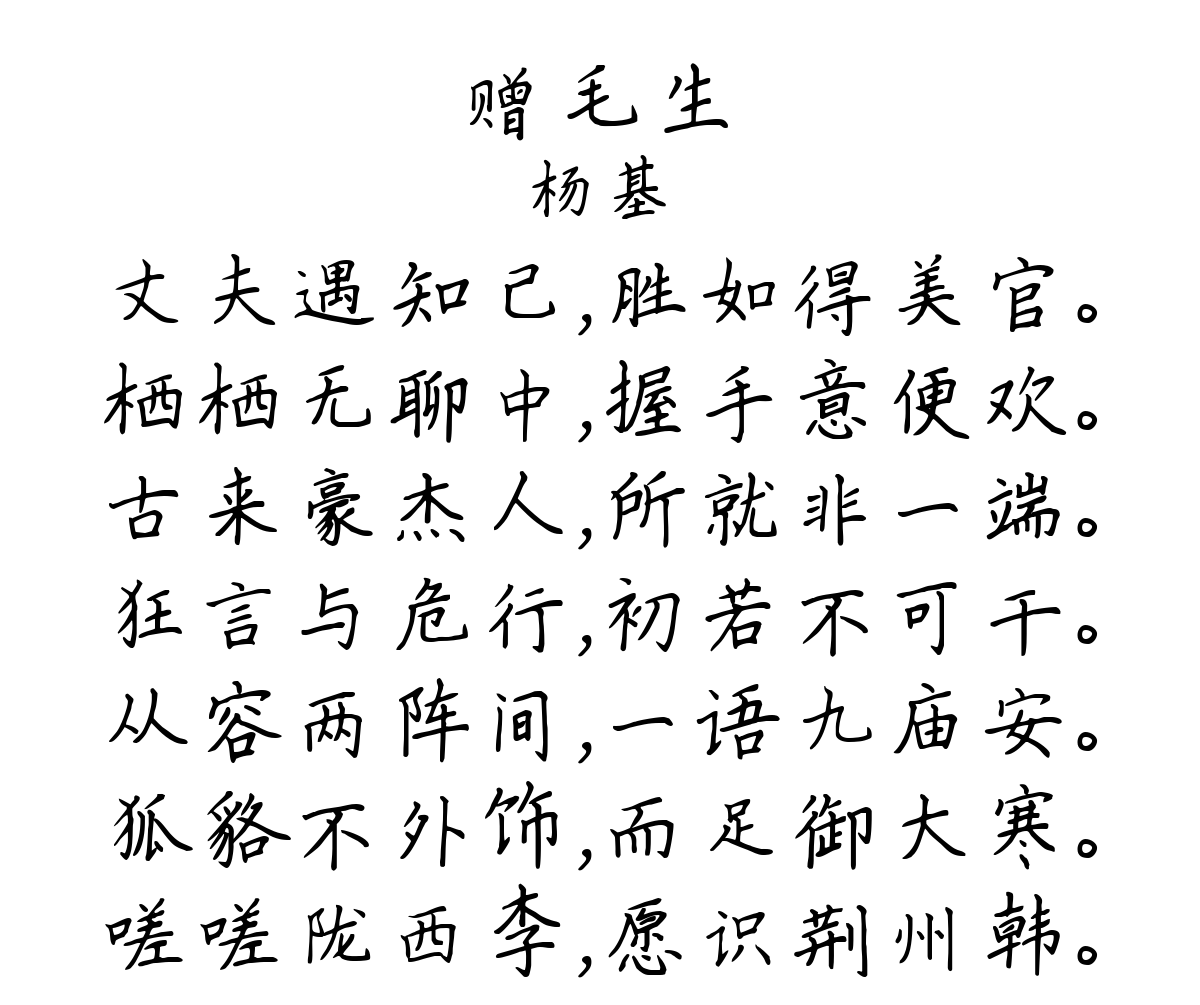 赠毛生
杨基
丈夫遇知己,胜如得美官。
栖栖无聊中,握手意便欢。
古来豪杰人,所就非一端。
狂言与危行,初若不可干。
从容两阵间,一语九庙安。
狐貉不外饰,而足御大寒。
嗟嗟陇西李,愿识荆州韩。